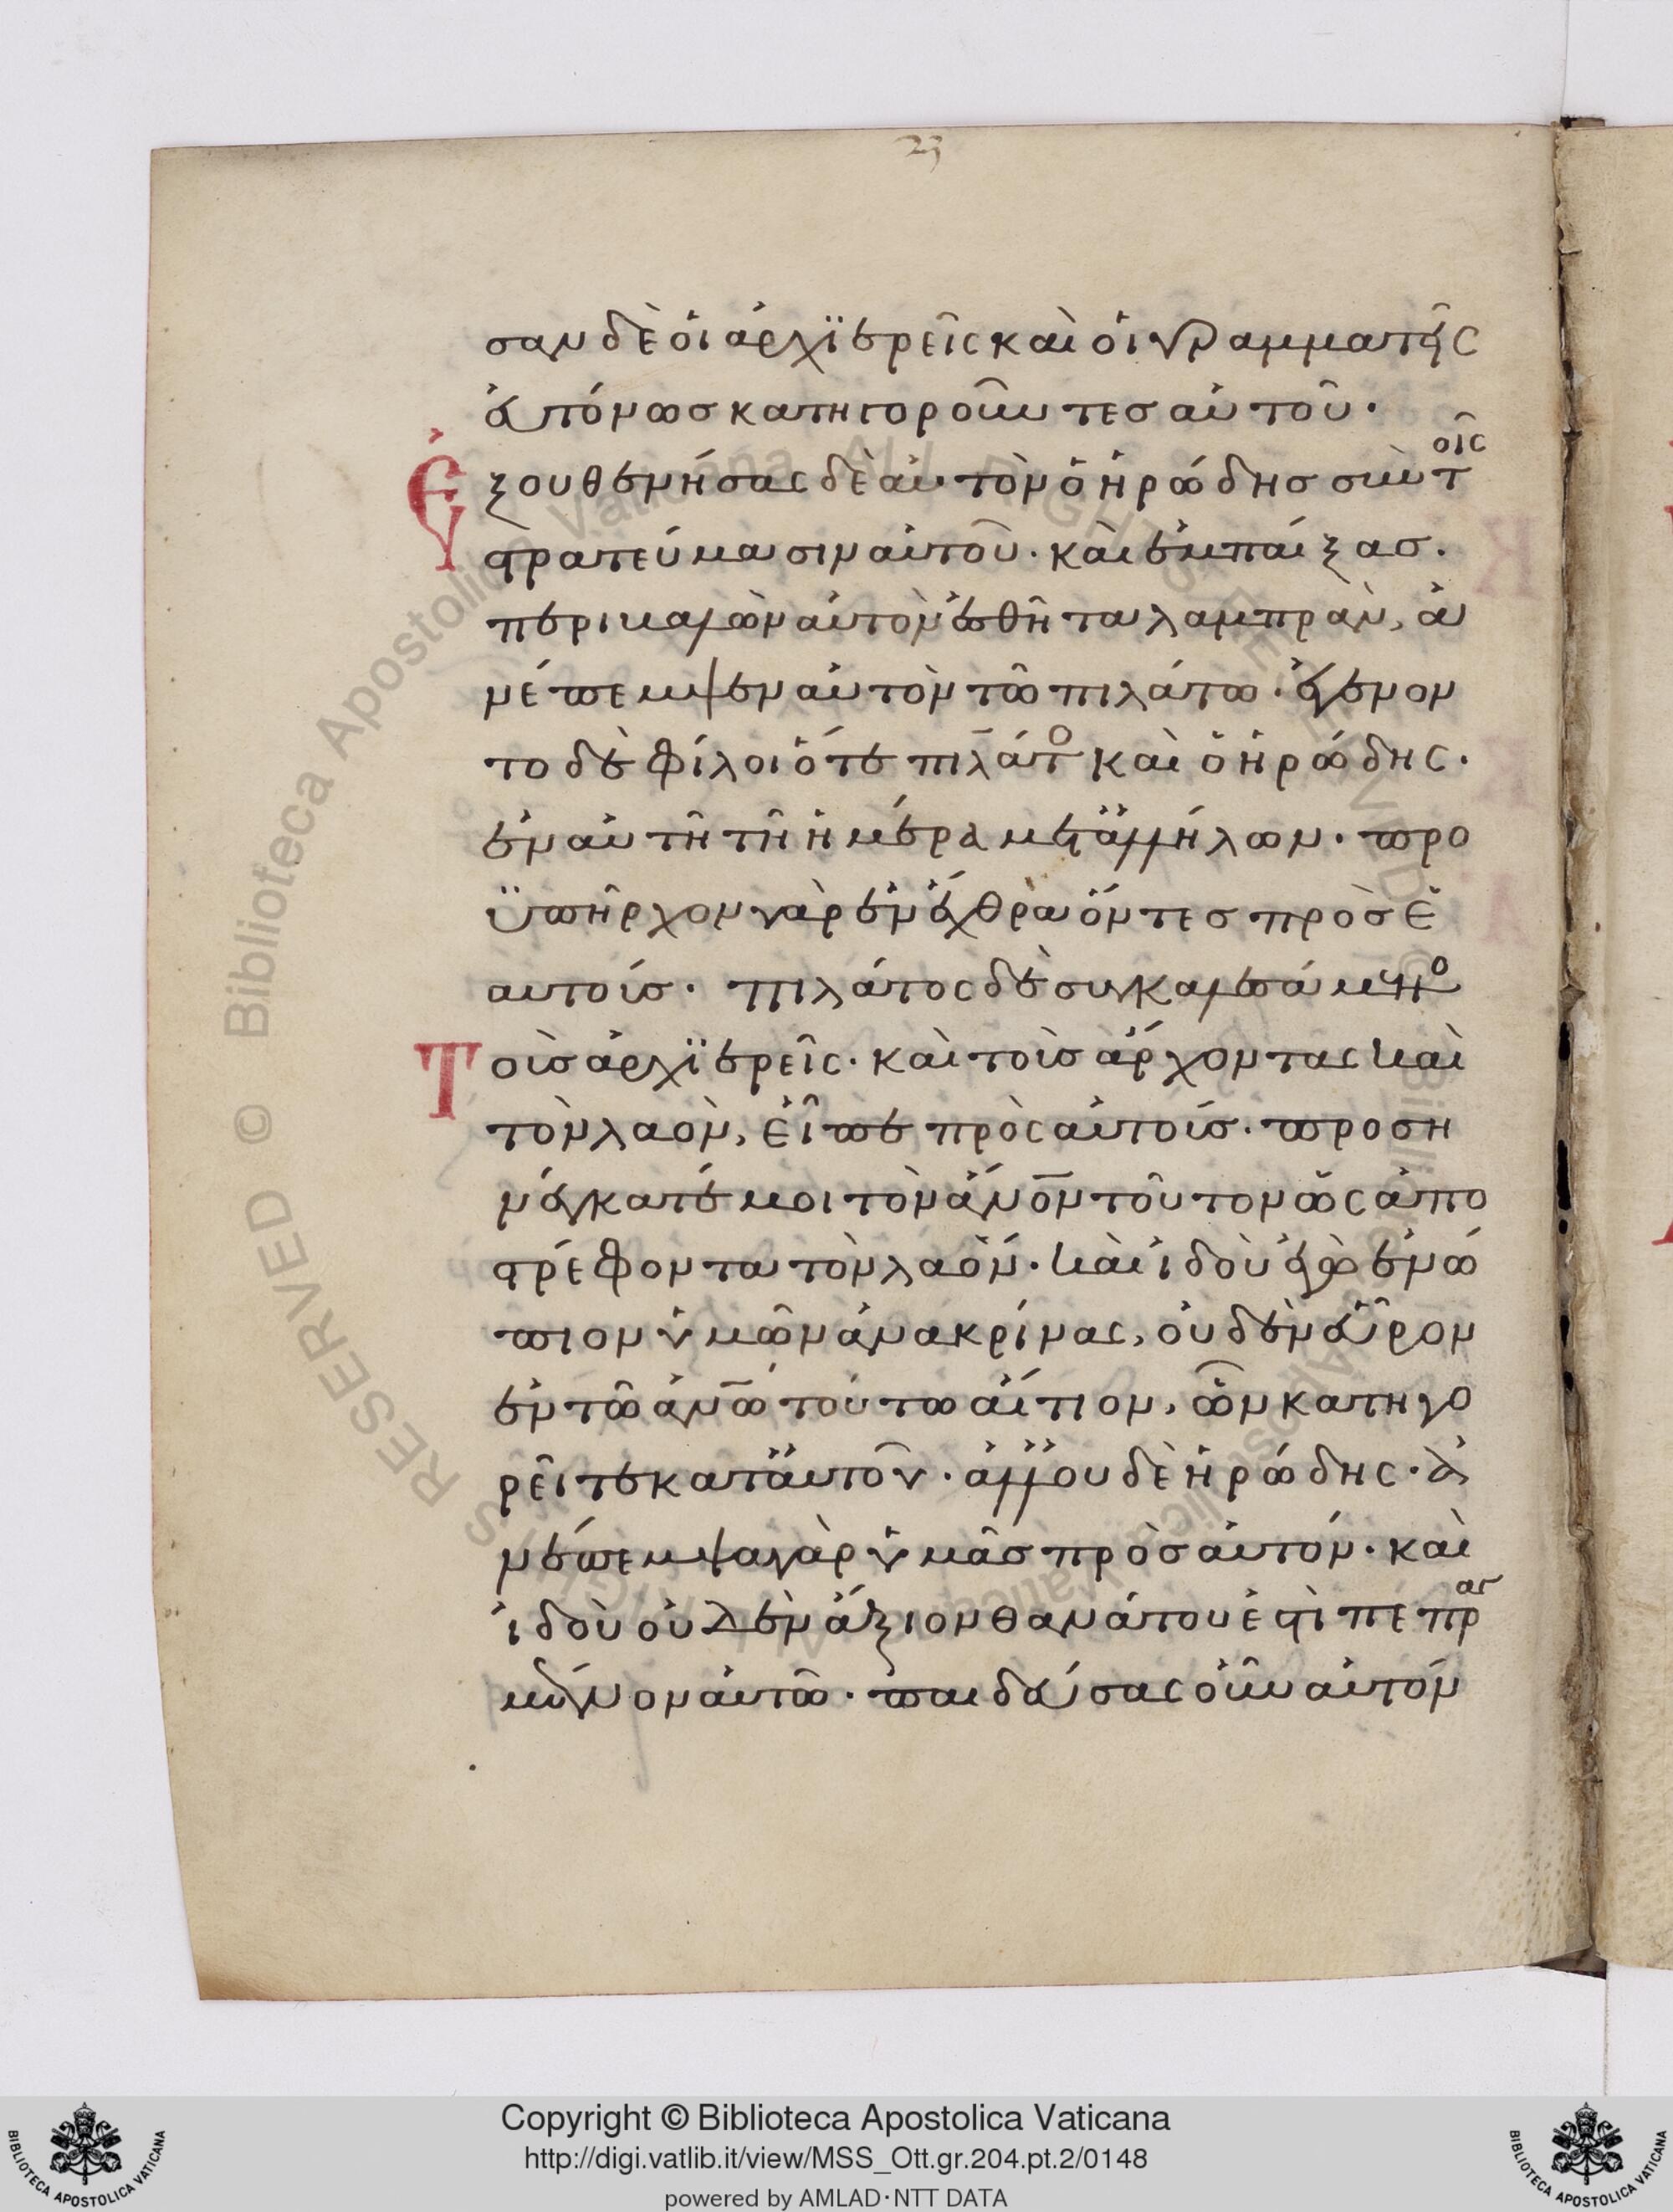 23
σαν δὲ ὁι ἀρχϊερεῖς καὶ ὁι γραμματεῖς
ἐυτόνωσ κατηγοροῦντεσ αὐτοῦ·
Ἐξουθενήσας δὲ αὐτὸν ὁ ἡρώδησ σὺν τοῖς
στρατεύμασιν αὐτοῦ· καὶ ἐμπαίξασ·
περιβαλὼν αὐτὸν ἐσθῆτα λαμπρὰν, ἀ
νέπεμψεν αὐτὸν τῶ πιλάτω· ἐγένον
το δὲ φίλοι ὅτε πιλάτο καὶ ὁ ἡρώδης·
ἐν αὐτῆ τῆ ἡμέρα μετ ἀλλήλων· προ
ϋπῆρχον γὰρ ἐν ἔχθρα ὄντεσ πρὸσ ἑ
αυτούσ· πιλάτος δὲ συγκαλεσάμενο
Τοὺσ ἀρχϊερεῖς· καὶ τοὺσ ἄρχοντας καὶ
τὸν λαὸν, εἶπε πρὸς αὐτούσ· προση
νέγκατέ μοι τὸν ἄνον τοῦτον ὡς ἀπο
στρέφοντα τὸν λαόν· καὶ ἰδοὺ ἐγὼ ἐνώ
πιον ὑμῶν ἀνακρίνας, οὐδὲν εὗρον
ἐν τῶ ἀνω τούτω αἴτιον, ὧν κατηγο
ρεῖτε κατ αὐτοῦ· ἀλλ οὐδὲ ἡρώδης· ἀ
νέπεμψα γὰρ ὑμᾶσ πρὸσ αὐτόν· καὶ
ἰδοὺ οὐδὲν ἄξιον θανάτου ἐστὶ πεπραγ
μένον αὐτῶ· παιδεύσας οὖν αὐτόν
Copyright © Biblioteca Apostolica Vaticana
http://digi.vatlib.it/view/MSS_Ott.gr.204.pt.2/0148
powered by AMLAD·NTT DATA